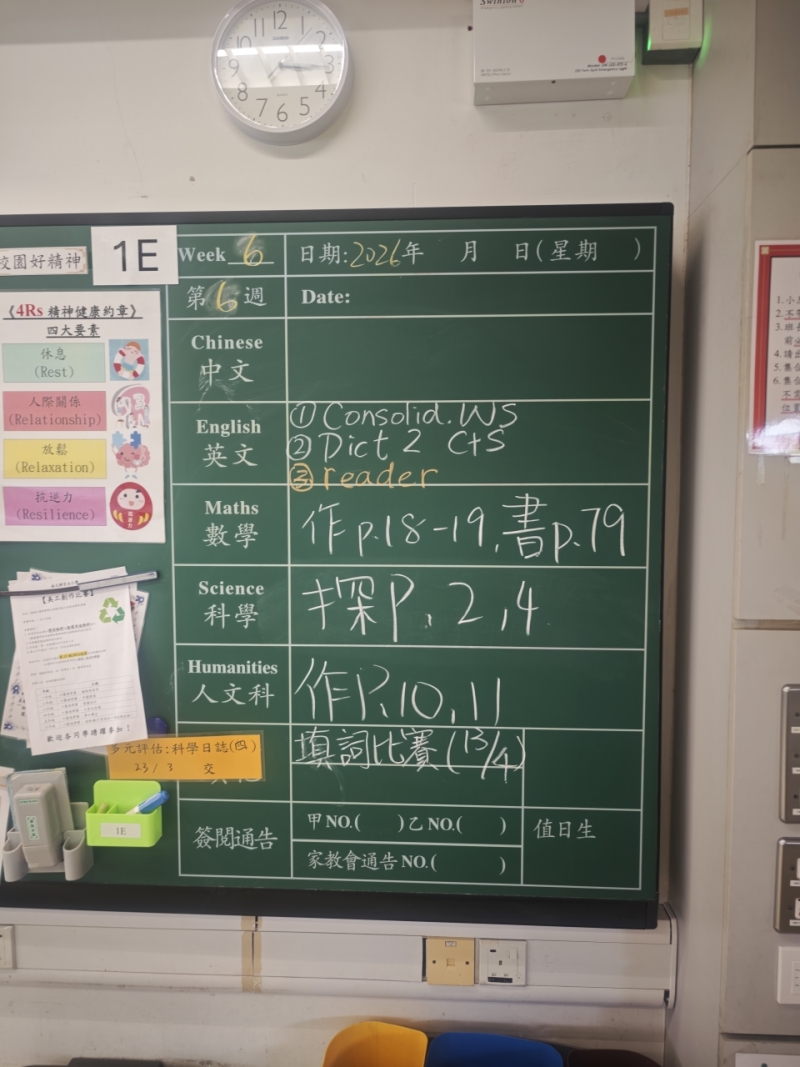 12
1
2
3
4
5
6
7
8
9
10
11
CASIO
Swinton
校園好精神
1E
Week 6
日期:2026年 月 日(星期 )
第6週
Date:
《4Rs 精神健康約章》
四大要素
休息
(Rest)
人際關係
(Relationship)
放鬆
(Relaxation)
抗逆力
(Resilience)
Chinese
中文
English
英文
① Consolid. WS
② Dict 2 Cts
③ reader
Maths
數學
作 p.18-19, 書 p.79
Science
科學
探P. 2, 4
Humanities
人文科
作P.10, 11
填詞比賽(13/4)
多元評估:科學日誌(四)
23/3 交
歡迎各同學踴躍參加!
1E
簽閱通告
甲NO.( )乙NO.( )
家教會通告NO.( )
值日生